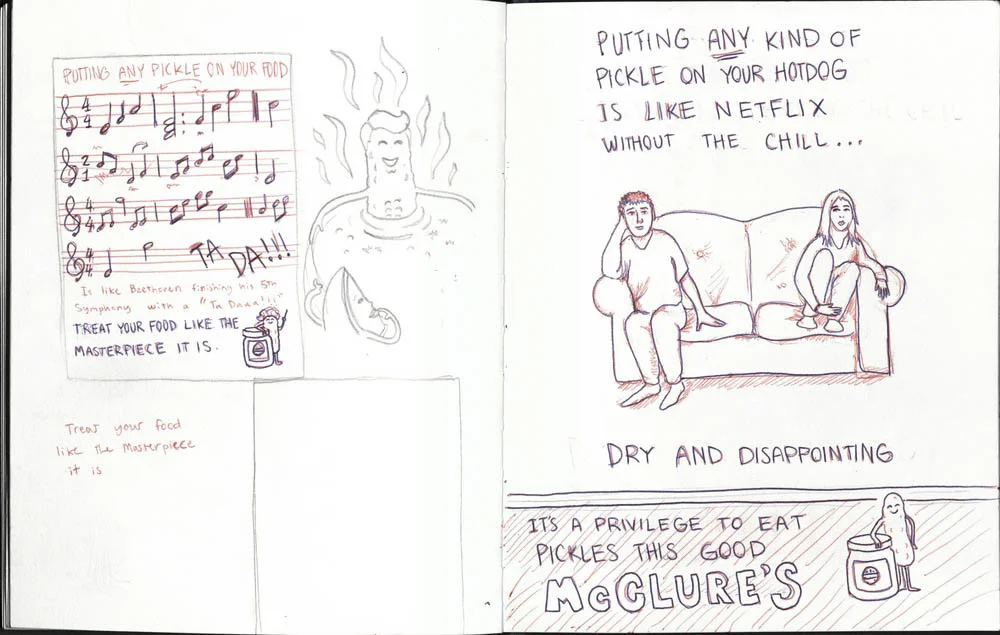 PUTTING ANY PICKLE ON YOUR FOOD
4
4
2
1
4
4
4
4
TA
DA!!!
Is like Beethoven finishing his 5th
Symphony with a "Ta Daaa!!!"
TREAT YOUR FOOD LIKE THE
MASTERPIECE IT IS.
Treat your food
like the Masterpiece
it is
PUTTING ANY KIND OF
PICKLE ON YOUR HOTDOG
IS LIKE NETFLIX
WITHOUT THE CHILL...
DRY AND DISAPPOINTING
IT'S A PRIVILEGE TO EAT
PICKLES THIS GOOD
McCLURE'S